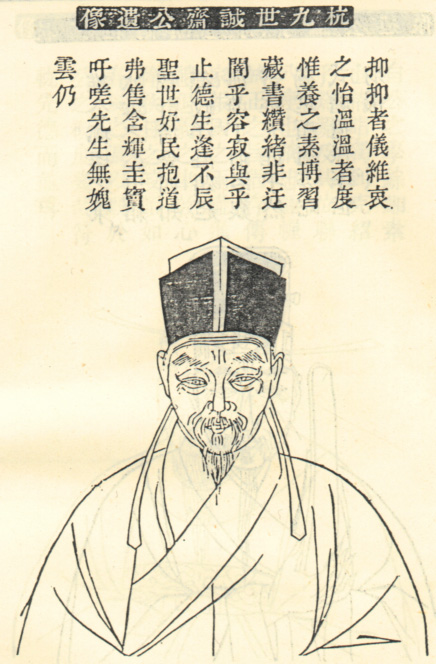 杭九世誠齋公遺像
抑抑者儀維衷
之怡溫溫者度
惟養之素博習
藏書纘緒非迂
闇乎容寂與乎
止德生逢不辰
聖世好民抱道
弗售含輝圭竇
吁嗟先生無媿
雲仍